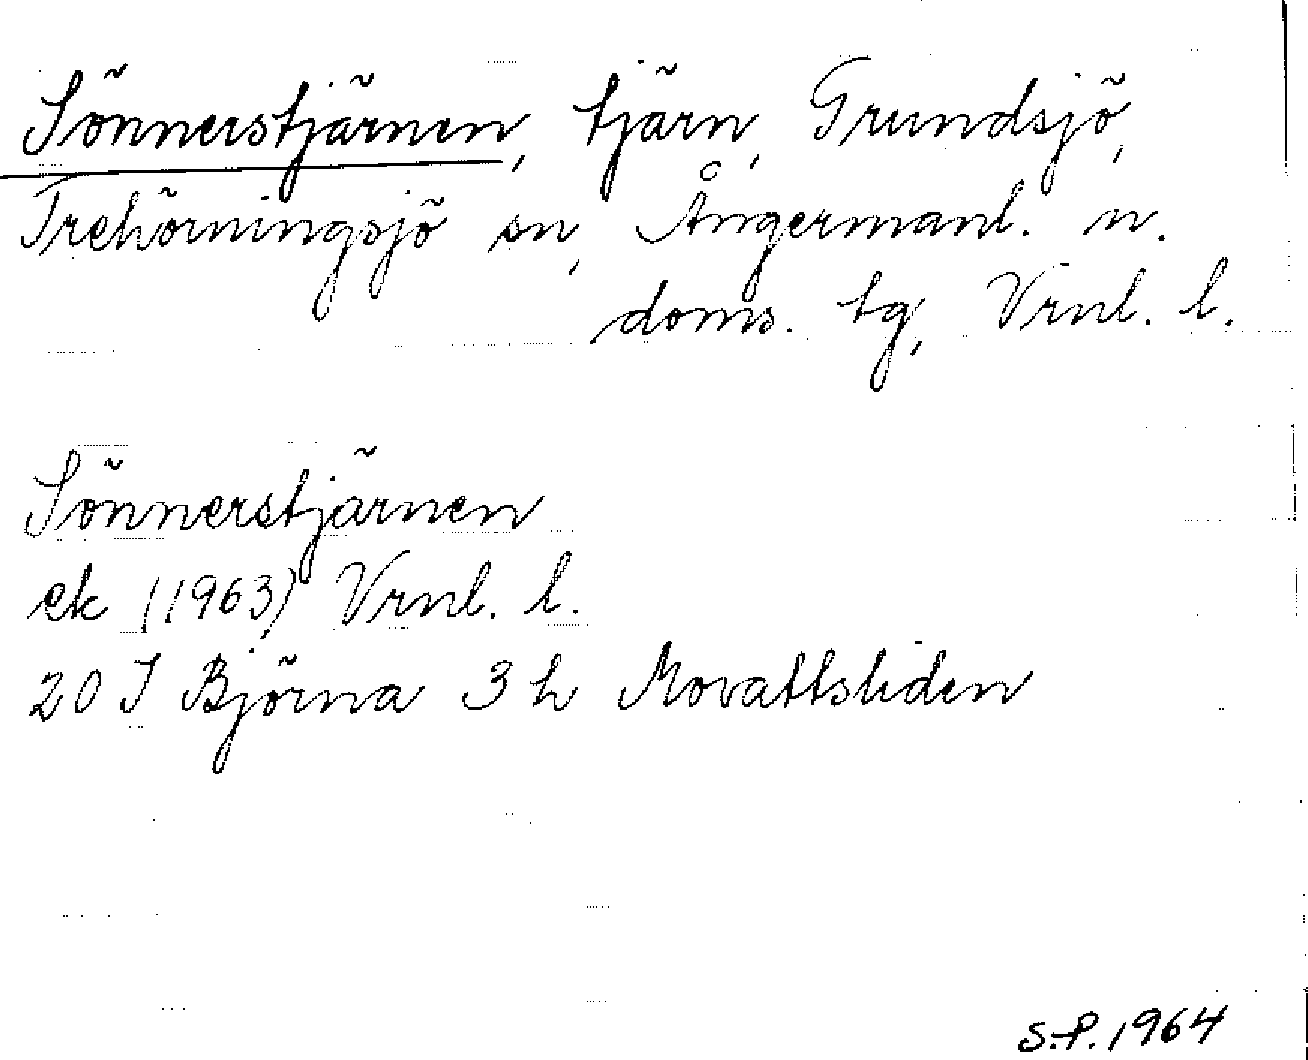 Sönnerstjärnen, tjärn, Grundsjö,
Trehörningsjö sn, Ångermanl. n.
doms. tg, Vrnl. l.
Sönnerstjärnen
ek (1963) Vrnl. l.
20 I Björna 3 h Movattsliden
S.P. 1964